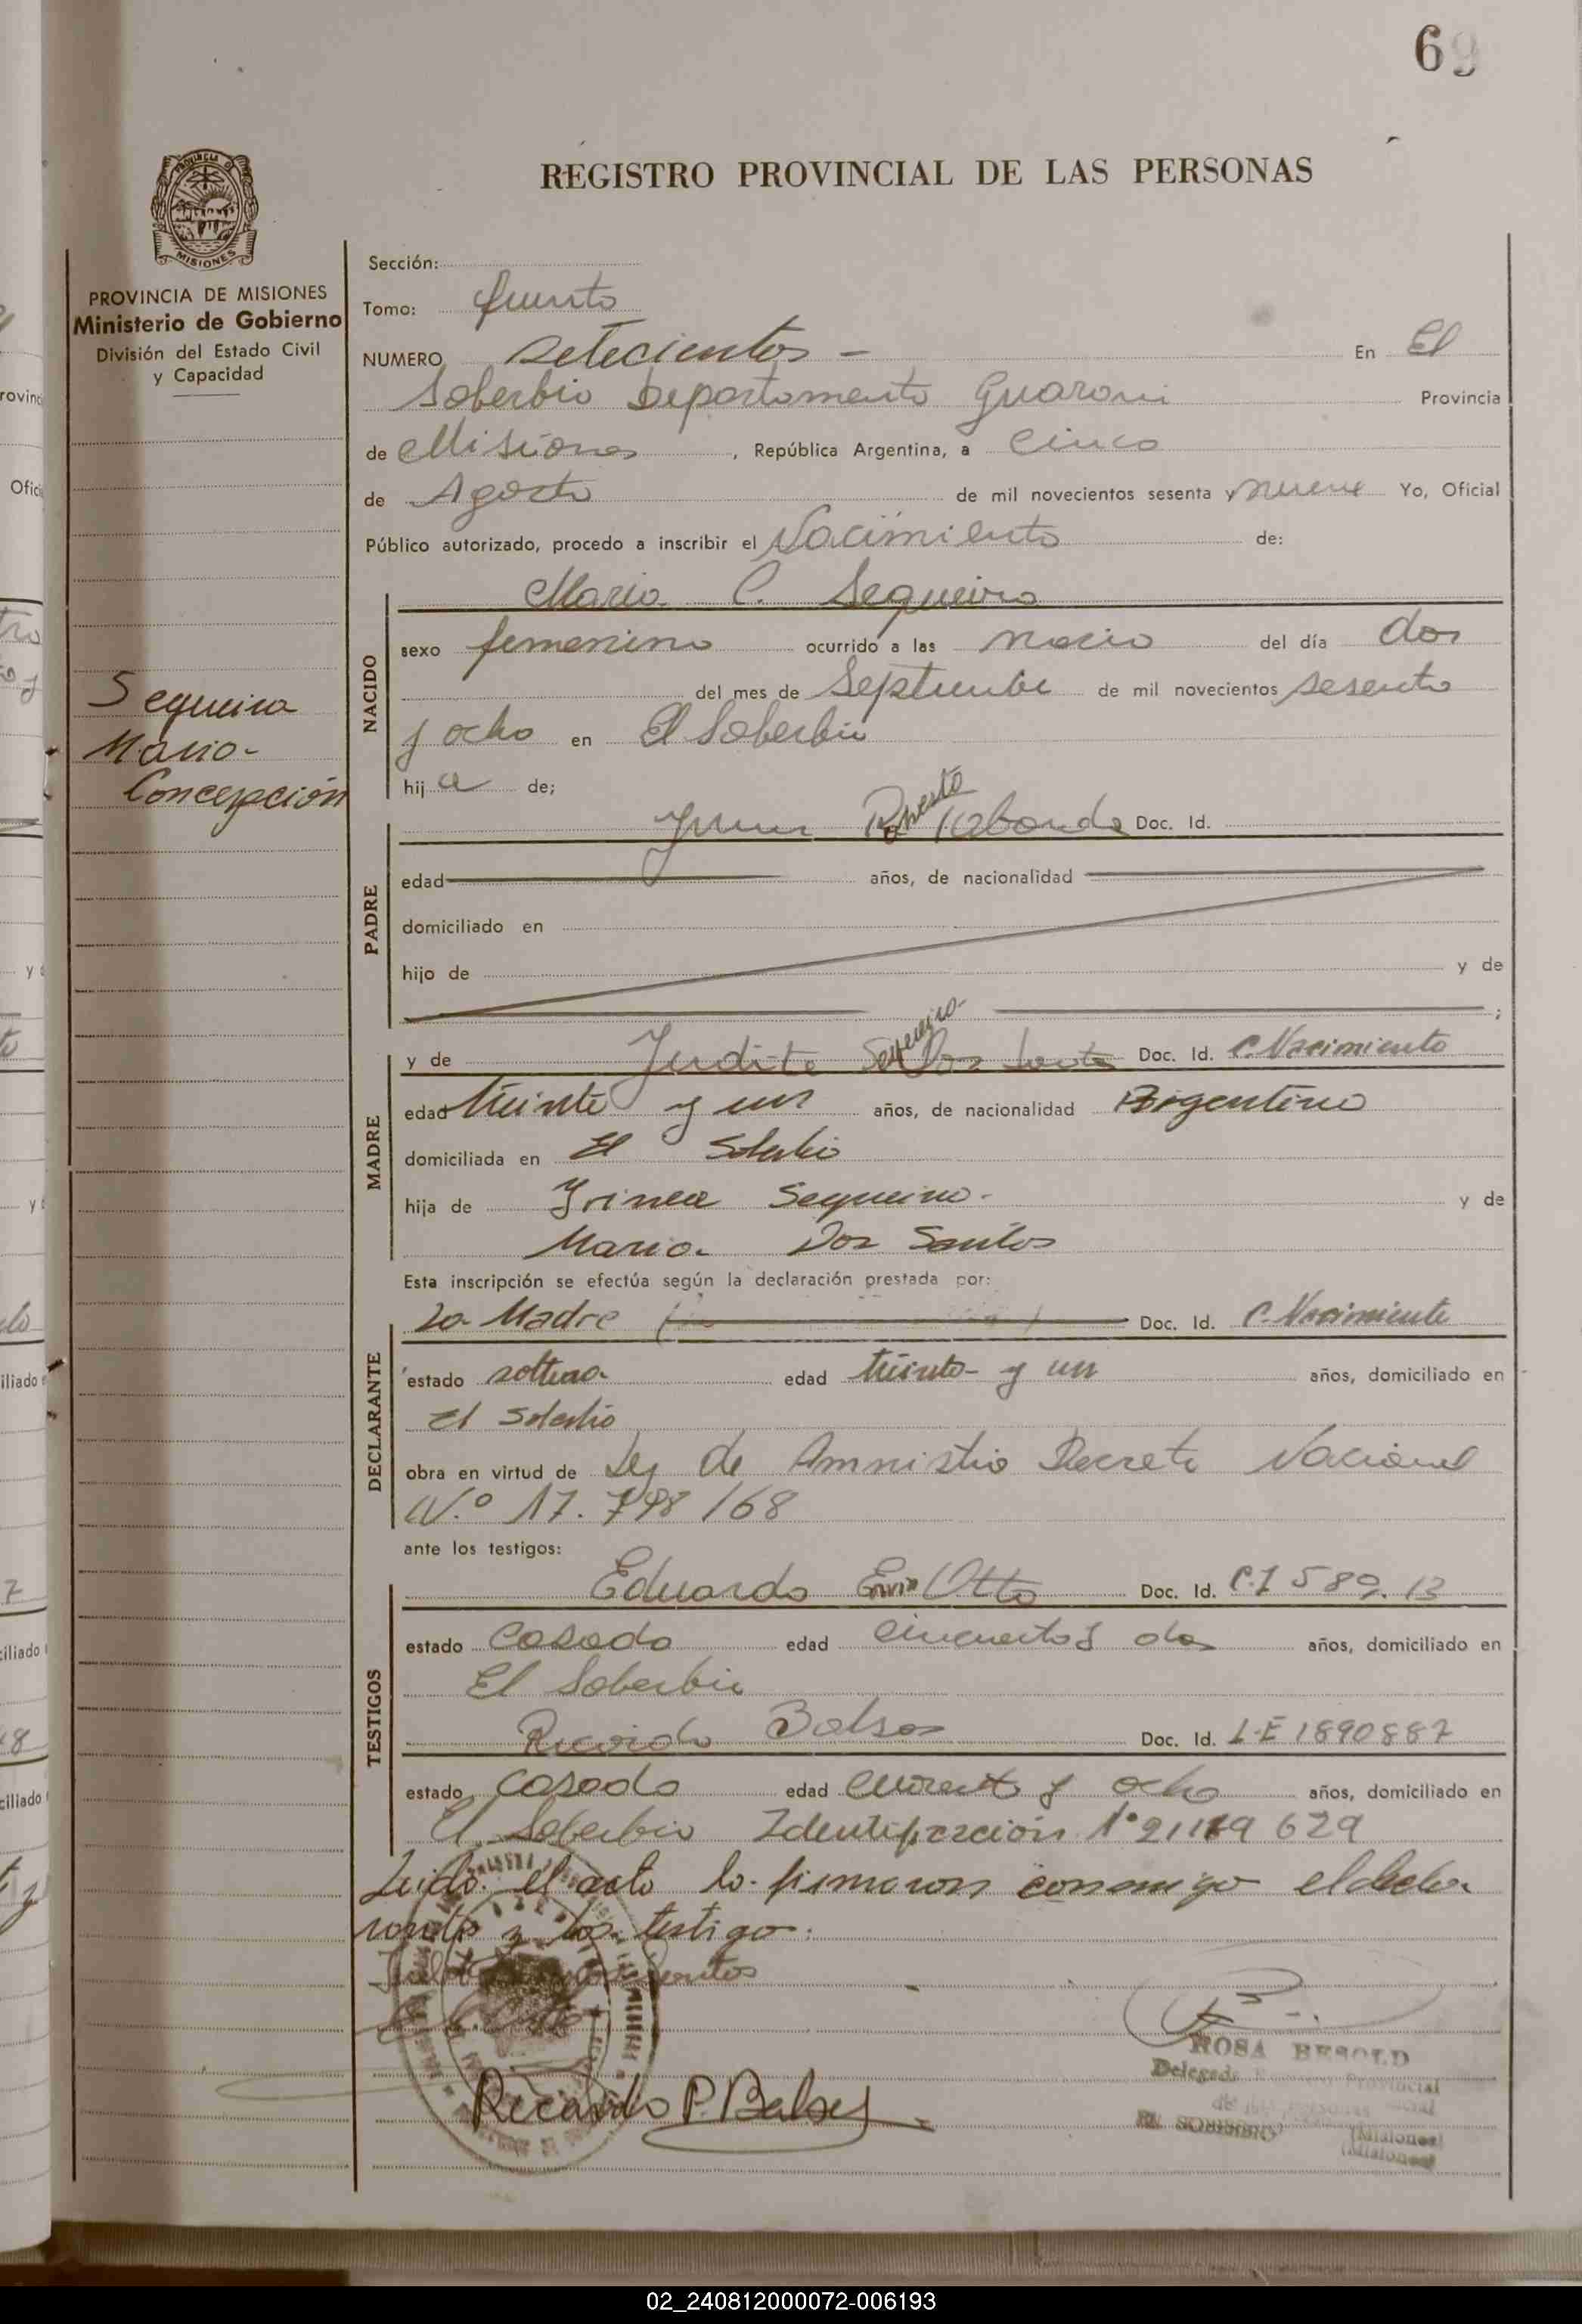 69
REGISTRO PROVINCIAL DE LAS PERSONAS
PROVINCIA DE MISIONES
Ministerio de Gobierno
División del Estado Civil
y Capacidad
Sequeira
Maria
Concepción
Sección:
Tomo: Quinto
NUMERO Setecientos - En El
Soberbio Departamento Guarani Provincia
de Misiones, República Argentina, a Cinco
de Agosto de mil novecientos sesenta y nueve Yo, Oficial
Público autorizado, procedo a inscribir el Nacimiento de:
NACIDO
Maria C. Sequeira
sexo femenino ocurrido a las del día dos
del mes de Septiembre de mil novecientos sesenta
y ocho en El Soberbio
hij a de;
PADRE
Taborda Doc. Id.
edad años, de nacionalidad
domiciliado en
hijo de y de
;
MADRE
Sequeira
y de Judite Dos Santos Doc. Id. C. Nacimiento
edad treinta y un años, de nacionalidad Argentina
domiciliada en El Soberbio
hija de Irinea Sequeira y de
Maria Dos Santos
Esta inscripción se efectúa según la declaración prestada por:
DECLARANTE
La Madre Doc. Id. C. Nacimiento
estado soltera edad treinta y un años, domiciliado en
El Soberbio
obra en virtud de Ley de Amnistia Decreto Nacional
N.º 17.798/68
ante los testigos:
TESTIGOS
Eduardo Otto Doc. Id. C.I 589.13
estado Casado edad cincuenta y dos años, domiciliado en
El Soberbio
Ricardo Doc. Id. L.E 1890887
estado Casado edad cuarenta y ocho años, domiciliado en
El Soberbio Identificación
Leida el acta la firmaron conmigo el decla
rante y los testigo.
Ricardo P.
ROSA BESOLD
Delegada Provincial
de las personas
EL SOBERBIO (Misiones)
02_240812000072-006193